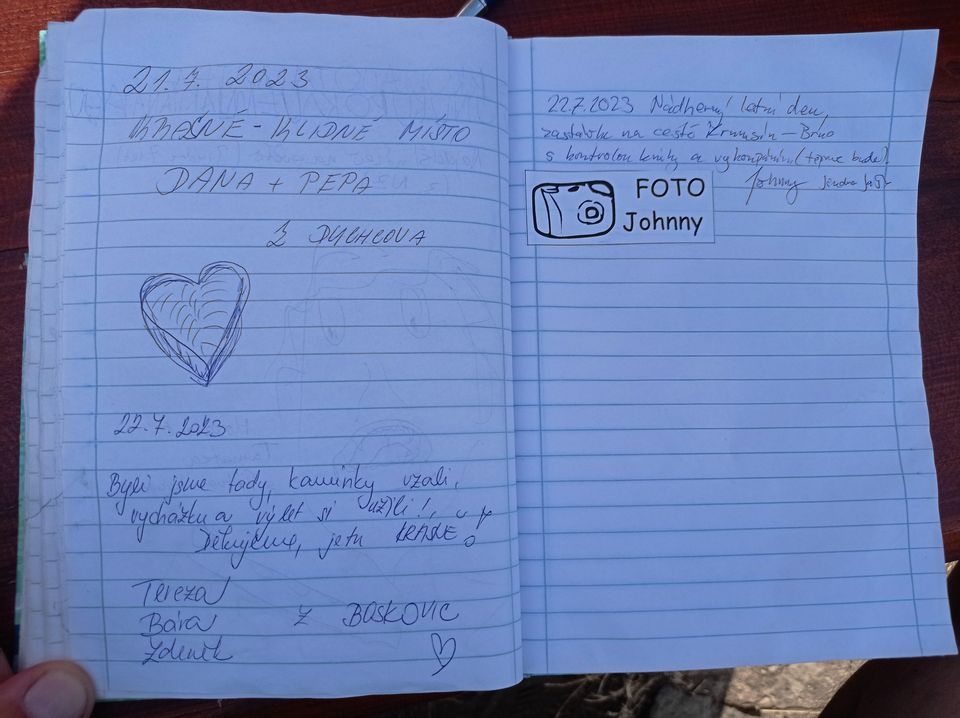 21.7. 2023
KRÁSNÉ - KLIDNÉ MÍSTO
DANA + PEPA
Z DUCHCOVA
22.7.2023
Byli jsme tady, kamínky vzali,
vycházku a výlet si užili!
Děkujeme, je tu KRÁSNĚ
Tereza
Bára Z BOSKOVIC
Zdeněk
22.7.2023 Nádherný letní den,
zastávka na cestě Krumsín - Brno
s kontrolou knihy a
Johnny
FOTO
Johnny